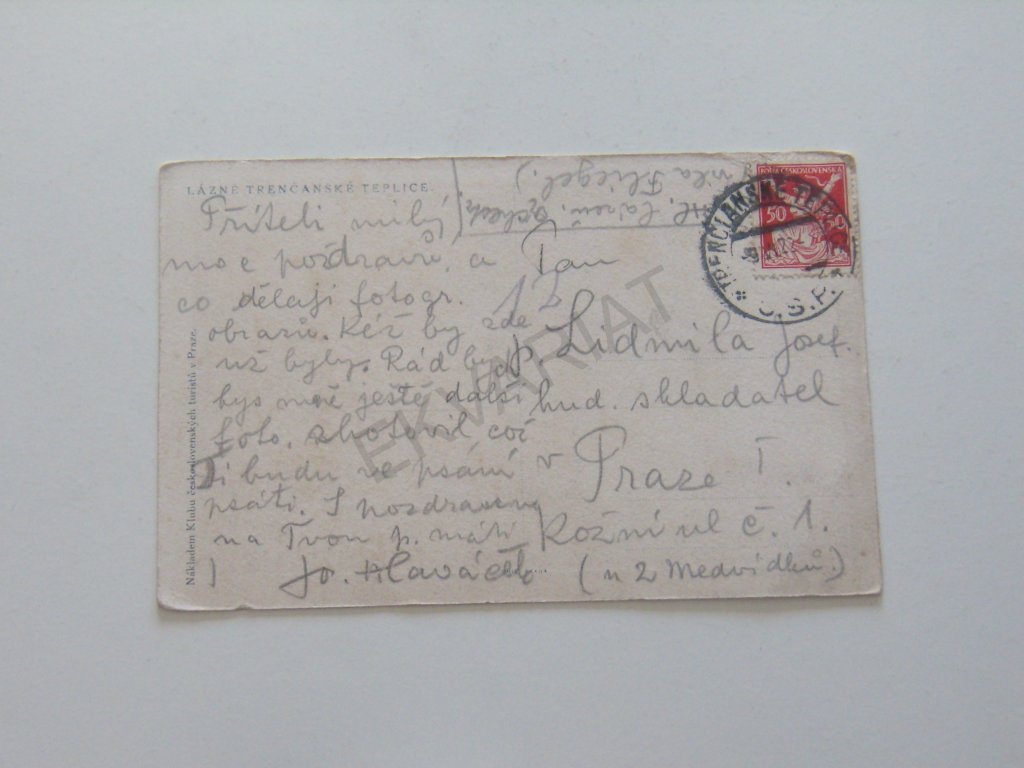 LÁZNĚ TRENČANSKÉ TEPLICE.
Příteli milý,
moc pozdravů a
co dělají fotogr.
obrazů. Kéž by zde
už byly. Rád bych
bys mně ještě další
foto. zhotovil, což
Ti budu ve psaní
psáti. S pozdravem
na Tvou p. máti
Jo. Hlaváček
Nákladem Klubu československých turistů v Praze.
vila Fliegel.)
POŠTA ČESKOSLOVENSKÁ
50 50
TRENČIANSKE TEPLICE
Č.S.P.
Pan
p. Lidmila Josef.
hud. skladatel
v Praze I.
Kožní ul č. 1.
(u 2 Medvídků.)
EKWARIAT